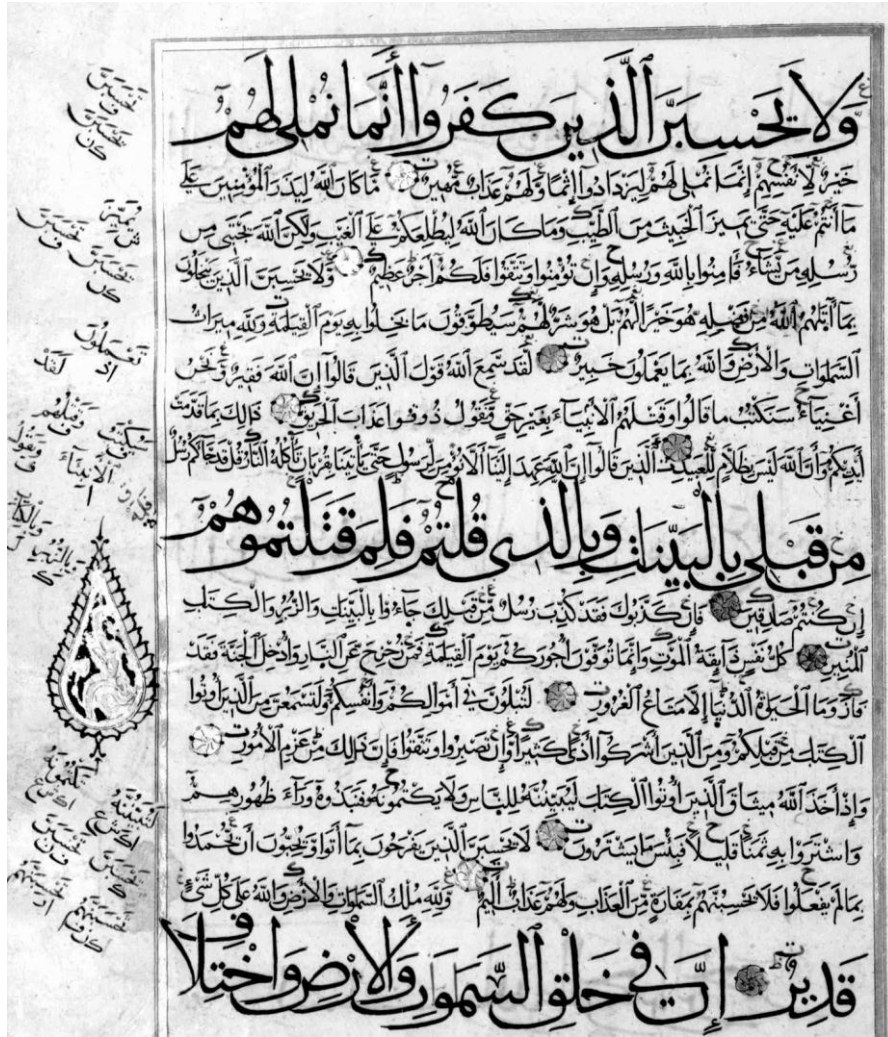 وَلَا يَحْسَبَنَّ ٱلَّذِينَ كَفَرُوٓا۟ أَنَّمَا نُمْلِى لَهُمْ
خَيْرٌ لِّأَنفُسِهِمْ إِنَّمَا نُمْلِى لَهُمْ لِيَزْدَادُوٓا۟ إِثْمًا وَلَهُمْ عَذَابٌ مُّهِينٌ مَّا كَانَ ٱللَّهُ لِيَذَرَ ٱلْمُؤْمِنِينَ عَلَىٰ
مَآ أَنتُمْ عَلَيْهِ حَتَّىٰ يَمِيزَ ٱلْخَبِيثَ مِنَ ٱلطَّيِّبِ وَمَا كَانَ ٱللَّهُ لِيُطْلِعَكُمْ عَلَى ٱلْغَيْبِ وَلَٰكِنَّ ٱللَّهَ يَجْتَبِى مِن
رُّسُلِهِ مَن يَشَآءُ فَـَٔامِنُوا۟ بِٱللَّهِ وَرُسُلِهِ وَإِن تُؤْمِنُوا۟ وَتَتَّقُوا۟ فَلَكُمْ أَجْرٌ عَظِيمٌ وَلَا يَحْسَبَنَّ ٱلَّذِينَ يَبْخَلُونَ
بِمَآ ءَاتَىٰهُمُ ٱللَّهُ مِن فَضْلِهِ هُوَ خَيْرًا لَّهُم بَلْ هُوَ شَرٌّ لَّهُمْ سَيُطَوَّقُونَ مَا بَخِلُوا۟ بِهِ يَوْمَ ٱلْقِيَٰمَةِ وَلِلَّهِ مِيرَاثُ
ٱلسَّمَٰوَاتِ وَٱلْأَرْضِ وَٱللَّهُ بِمَا يَعْمَلُونَ خَبِيرٌ لَّقَدْ سَمِعَ ٱللَّهُ قَوْلَ ٱلَّذِينَ قَالُوٓا۟ إِنَّ ٱللَّهَ فَقِيرٌ وَنَحْنُ
أَغْنِيَآءُ سَنَكْتُبُ مَا قَالُوا۟ وَقَتْلَهُمُ ٱلْأَنبِيَآءَ بِغَيْرِ حَقٍّ وَنَقُولُ ذُوقُوا۟ عَذَابَ ٱلْحَرِيقِ ذَٰلِكَ بِمَا قَدَّمَتْ
أَيْدِيكُمْ وَأَنَّ ٱللَّهَ لَيْسَ بِظَلَّامٍ لِّلْعَبِيدِ ٱلَّذِينَ قَالُوٓا۟ إِنَّ ٱللَّهَ عَهِدَ إِلَيْنَآ أَلَّا نُؤْمِنَ لِرَسُولٍ حَتَّىٰ يَأْتِيَنَا بِقُرْبَانٍ تَأْكُلُهُ ٱلنَّارُ قُلْ قَدْ جَآءَكُمْ رُسُلٌ
مِّن قَبْلِى بِٱلْبَيِّنَٰتِ وَبِٱلَّذِى قُلْتُمْ فَلِمَ قَتَلْتُمُوهُمْ
إِن كُنتُمْ صَٰدِقِينَ فَإِن كَذَّبُوكَ فَقَدْ كُذِّبَ رُسُلٌ مِّن قَبْلِكَ جَآءُو بِٱلْبَيِّنَٰتِ وَٱلزُّبُرِ وَٱلْكِتَٰبِ
ٱلْمُنِيرِ كُلُّ نَفْسٍ ذَآئِقَةُ ٱلْمَوْتِ وَإِنَّمَا تُوَفَّوْنَ أُجُورَكُمْ يَوْمَ ٱلْقِيَٰمَةِ فَمَن زُحْزِحَ عَنِ ٱلنَّارِ وَأُدْخِلَ ٱلْجَنَّةَ فَقَدْ
فَازَ وَمَا ٱلْحَيَوٰةُ ٱلدُّنْيَآ إِلَّا مَتَٰعُ ٱلْغُرُورِ لَتُبْلَوُنَّ فِىٓ أَمْوَٰلِكُمْ وَأَنفُسِكُمْ وَلَتَسْمَعُنَّ مِنَ ٱلَّذِينَ أُوتُوا۟
ٱلْكِتَٰبَ مِن قَبْلِكُمْ وَمِنَ ٱلَّذِينَ أَشْرَكُوٓا۟ أَذًى كَثِيرًا وَإِن تَصْبِرُوا۟ وَتَتَّقُوا۟ فَإِنَّ ذَٰلِكَ مِنْ عَزْمِ ٱلْأُمُورِ
وَإِذْ أَخَذَ ٱللَّهُ مِيثَاقَ ٱلَّذِينَ أُوتُوا۟ ٱلْكِتَٰبَ لَيُبَيِّنُنَّهُ لِلنَّاسِ وَلَا يَكْتُمُونَهُ فَنَبَذُوهُ وَرَآءَ ظُهُورِهِمْ
وَٱشْتَرَوْا۟ بِهِ ثَمَنًا قَلِيلًا فَبِئْسَ مَا يَشْتَرُونَ لَا يَحْسَبَنَّ ٱلَّذِينَ يَفْرَحُونَ بِمَآ أَتَوا۟ وَّيُحِبُّونَ أَن يُحْمَدُوا۟
بِمَا لَمْ يَفْعَلُوا۟ فَلَا تَحْسَبَنَّهُم بِمَفَازَةٍ مِّنَ ٱلْعَذَابِ وَلَهُمْ عَذَابٌ أَلِيمٌ وَلِلَّهِ مُلْكُ ٱلسَّمَٰوَاتِ وَٱلْأَرْضِ وَٱللَّهُ عَلَىٰ كُلِّ شَىْءٍ
قَدِيرٌ إِنَّ فِى خَلْقِ ٱلسَّمَٰوَاتِ وَٱلْأَرْضِ وَٱخْتِلَافِ
تعملون
لقد
سيكتب
وقتلهم
الأنبياء
ويقول
وبالزبر